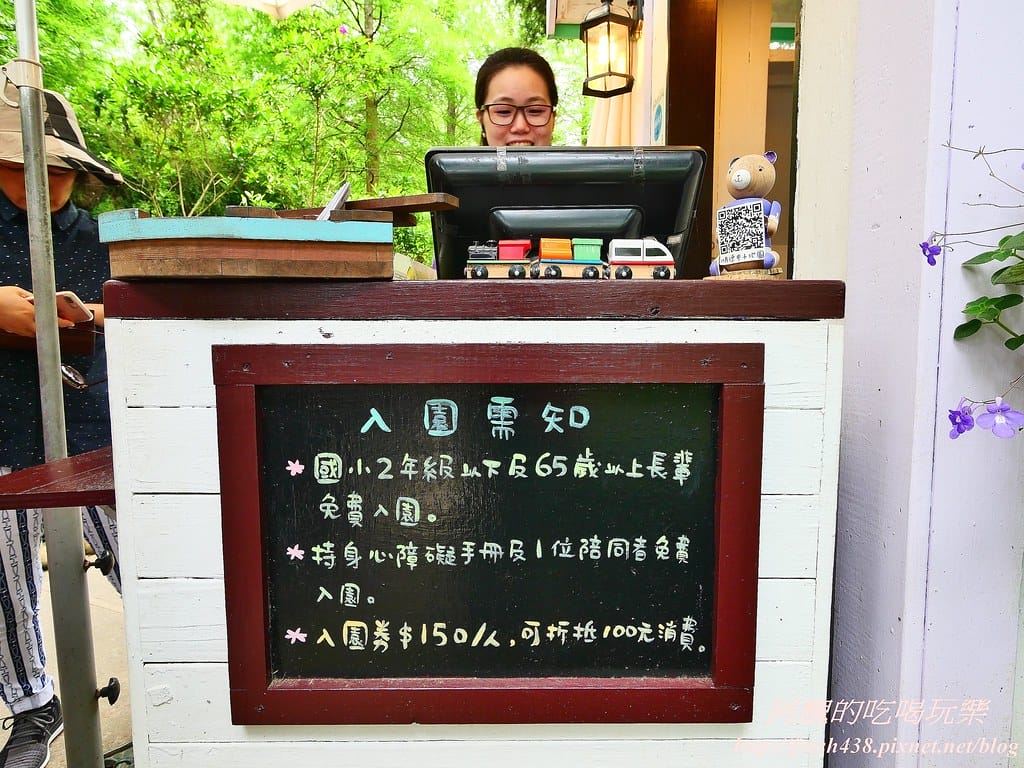 入園需知
*國小2年級以下及65歲以上長輩
免費入園。
*持身心障礙手冊及1位陪同者免費
入園。
*入園券$150/人,可折抵100元消費。
的吃喝玩樂
438.pixnet.net/blog